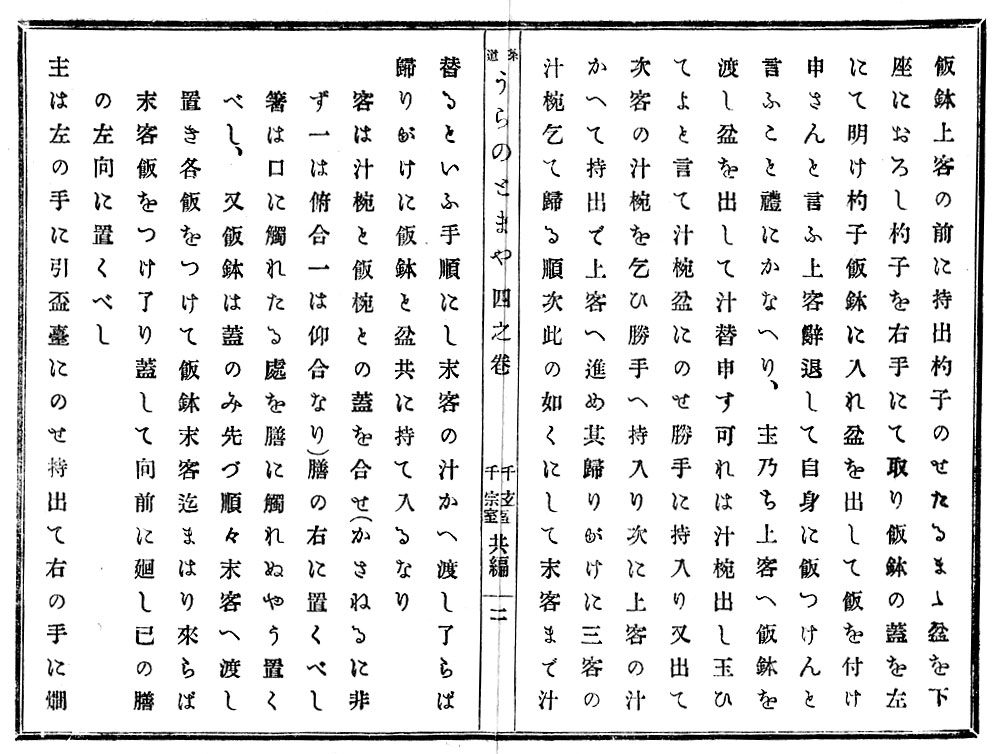 飯鉢上客の前に持出杓子のせたるまゝ盆を下
座におろし杓子を右手にて取り飯鉢の蓋を左
にて明け杓子飯鉢に入れ盆を出して飯を付け
申さんと言ふ上客辭退して自身に飯つけんと
言ふこと禮にかなへり、主乃ち上客へ飯鉢を
渡し盆を出して汁替申す可れは汁椀出し玉ひ
てよと言て汁椀盆にのせ勝手に持入り又出て
次客の汁椀を乞ひ勝手へ持入り次に上客の汁
かへて持出で上客へ進め其歸りがけに三客の
汁椀乞て歸る順次此の如くにして末客まで汁
茶道 うらのとまや 四之卷 千玄室 千宗室 共編 二
替るといふ手順にし末客の汁かへ渡し了らば
歸りがけに飯鉢と盆共に持て入るなり
客は汁椀と飯椀との蓋を合せ(かさねるに非
ず一は俯合一は仰合なり)膳の右に置くべし
箸は口に觸れたる處を膳に觸れぬやう置く
べし、又飯鉢は蓋のみ先づ順々末客へ渡し
置き各飯をつけて飯鉢末客迄まはり來らば
末客飯をつけ了り蓋して向前に廻し已の膳
の左向に置くべし
主は左の手に引盃臺にのせ持出て右の手に燗